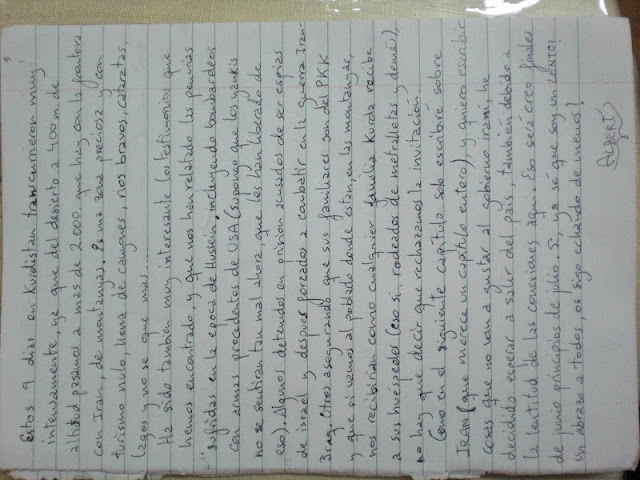 Estos 9 dias en Kurdistan transcurrieron muy
intensamente, ya que del desierto a 400 m. de
altitud pasamos a mas de 2.000 que hay con la frontera
con Iran, de montañas. Es una zona preciosa y con
turismo nulo, llena de canyones, rios bravos, cataratas,
lagos y no se que mas...
Ha sido tambien muy interesante los testimonios que
hemos encontrado, y que nos han relatado las penurias
sufridas en la epoca de Hussein, incluyendo bombardeos
con armas procedentes de USA (supongo que los yankis
no se sentiran tan mal ahora, que les han librado de
eso). Algunos detenidos en prision acusados de ser espias
de israel y despues forzados a combatir en la guerra Iran-
Iraq. Otros asegurando que sus familiares son del PKK
y que si vamos al poblado donde estan, en las montañas,
nos recibirian como cualquier familia Kurda recibe
a sus huéspedes (eso si, rodeados de metralletas y demás),
no hay que decir que rechazamos la invitación
Como en el siguiente capítulo solo escribiré sobre
IRAN (que merece un capitulo entero), y quiero escribir
cosas que no van a gustar al gobierno irami, he
decidido esperar a salir del país, también debido a
la lentitud de las conexiones aqui. Eso será creo finales
de junio principios de julio. Si ya sé que soy un LENTO!
Un abrazo a todos, os sigo echando de menos!
ALBERT